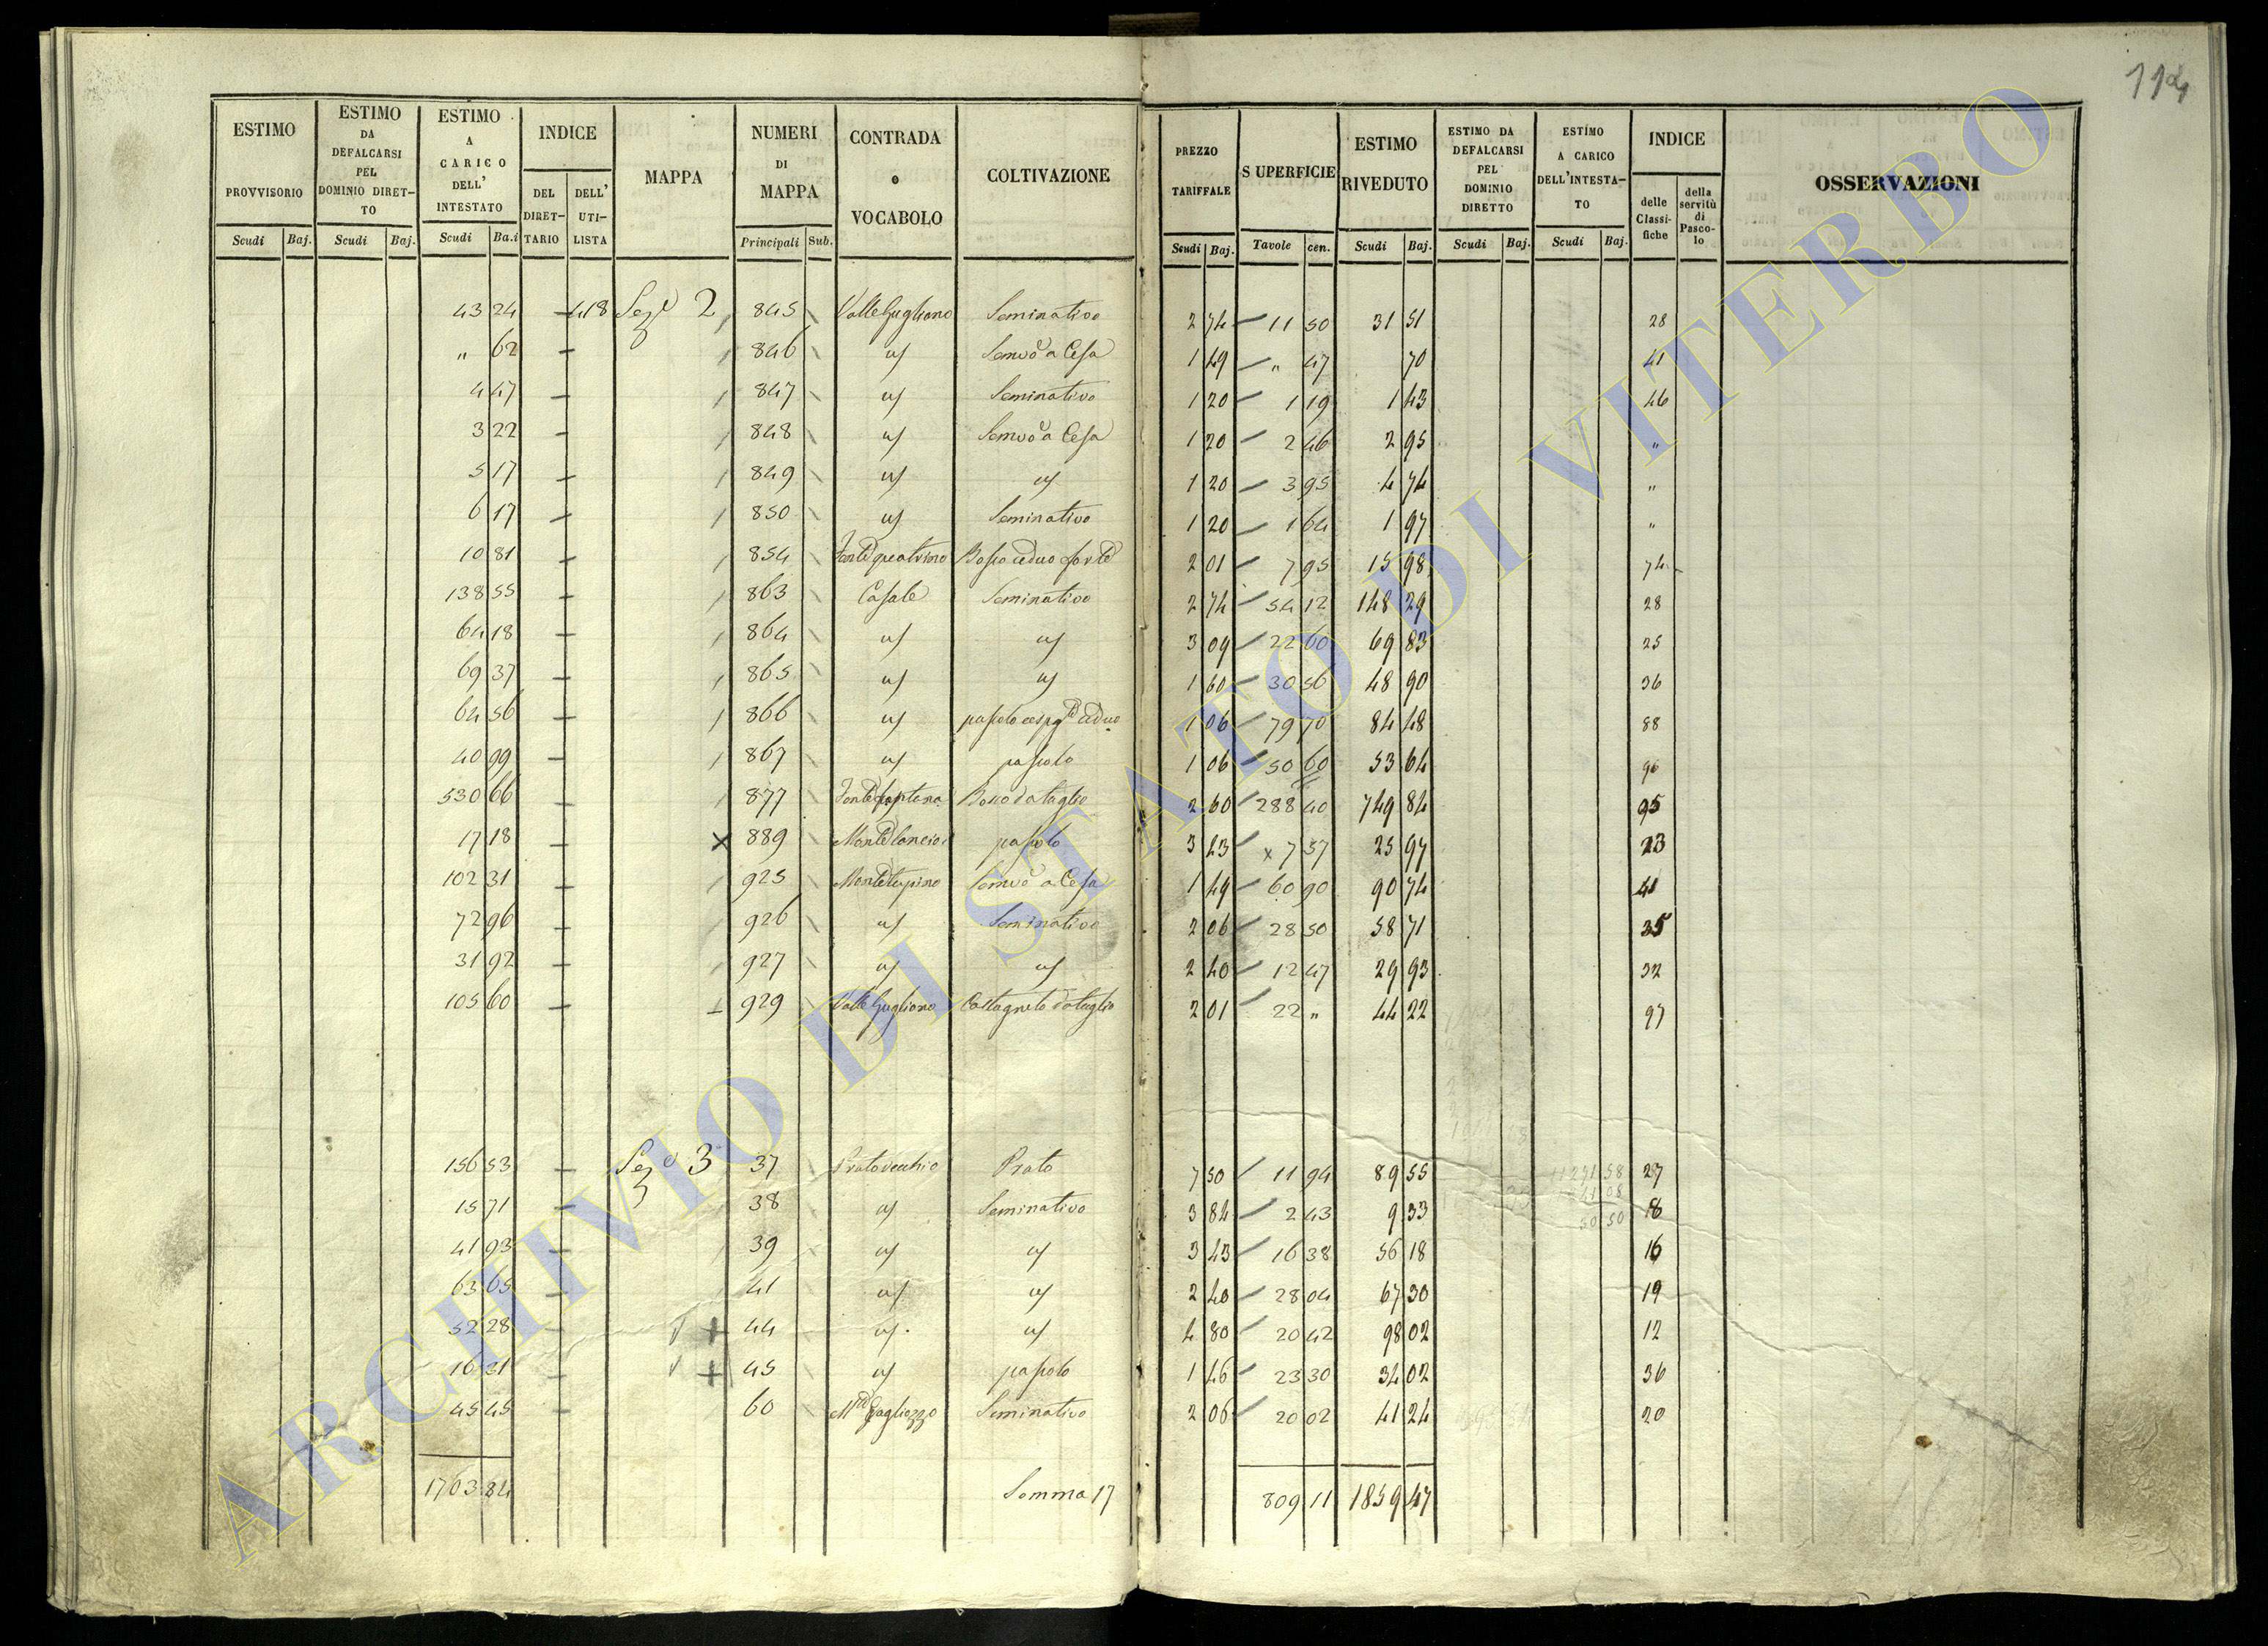 114
ESTIMO PROVVISORIO | ESTIMO DA DEFALCARSI PEL DOMINIO DIRETTO | ESTIMO A CARICO DELL' INTESTATO | INDICE DEL DIRETTARIO | DELL' UTILISTA | MAPPA | NUMERI DI MAPPA | CONTRADA o VOCABOLO | COLTIVAZIONE | PREZZO TARIFFALE | SUPERFICIE | ESTIMO RIVEDUTO | ESTIMO DA DEFALCARSI PEL DOMINIO DIRETTO | ESTIMO A CARICO DELL'INTESTATO | INDICE delle Classifiche | della servitù di Pascolo | OSSERVAZIONI
Scudi Baj. | Scudi Baj. | Scudi Ba.i | Principali Sub. | Scudi Baj. | Tavole cen. | Scudi Baj. | Scudi Baj. | Scudi Baj.
43 24 — 418 Sez.e 2 845 Valle Gugliano Seminativo 2 74 11 50 31 51 28
" 62 — 846 id Semvo a Cesa 1 49 " 47 70 41
4 47 — 847 id Seminativo 1 20 1 19 1 43 46
3 22 — 848 id Semvo a Cesa 1 20 2 46 2 95 "
5 17 — 849 id id 1 20 3 95 4 74 "
6 17 — 850 id Seminativo 1 20 1 64 1 97 "
10 81 — 854 Bosco ceduo forte 2 01 7 95 15 98 74
138 55 — 863 Casale Seminativo 2 74 54 12 148 29 28
64 18 — 864 id id 3 09 22 60 69 83 25
69 37 — 865 id id 1 60 30 56 48 90 36
64 56 — 866 id pascolo cespg.to ceduo 1 06 79 70 84 48 88
40 99 — 867 id pascolo 1 06 50 60 53 64 96
530 66 — 877 Bosco da taglio 2 60 288 40 749 84 95
17 18 — x 889 pascolo 3 43 x 7 57 25 97 23
102 31 — 925 Semvo a Cesa 1 49 60 90 90 74 41
72 96 — 926 id Seminativo 2 06 28 50 58 71 35
31 92 — 927 id id 2 40 12 47 29 93 32
105 60 — 929 Valle Gugliano Castagneto da taglio 2 01 22 " 44 22 97
156 53 — Sez.e 3 37 Prato vecchio Prato 7 50 11 94 89 55 27
15 71 — 38 id Seminativo 3 84 2 43 9 33 18
41 93 — 39 id id 3 43 16 38 56 18 16
63 65 — 41 id id 2 40 28 04 67 30 19
52 28 — + 44 id id 4 80 20 42 98 02 12
16 31 — + 45 id pascolo 1 46 23 30 34 02 36
45 45 — 60 Seminativo 2 06 20 02 41 24 20
1703 84 Somma 17 809 11 1859 47
ARCHIVIO DI STATO DI VITERBO